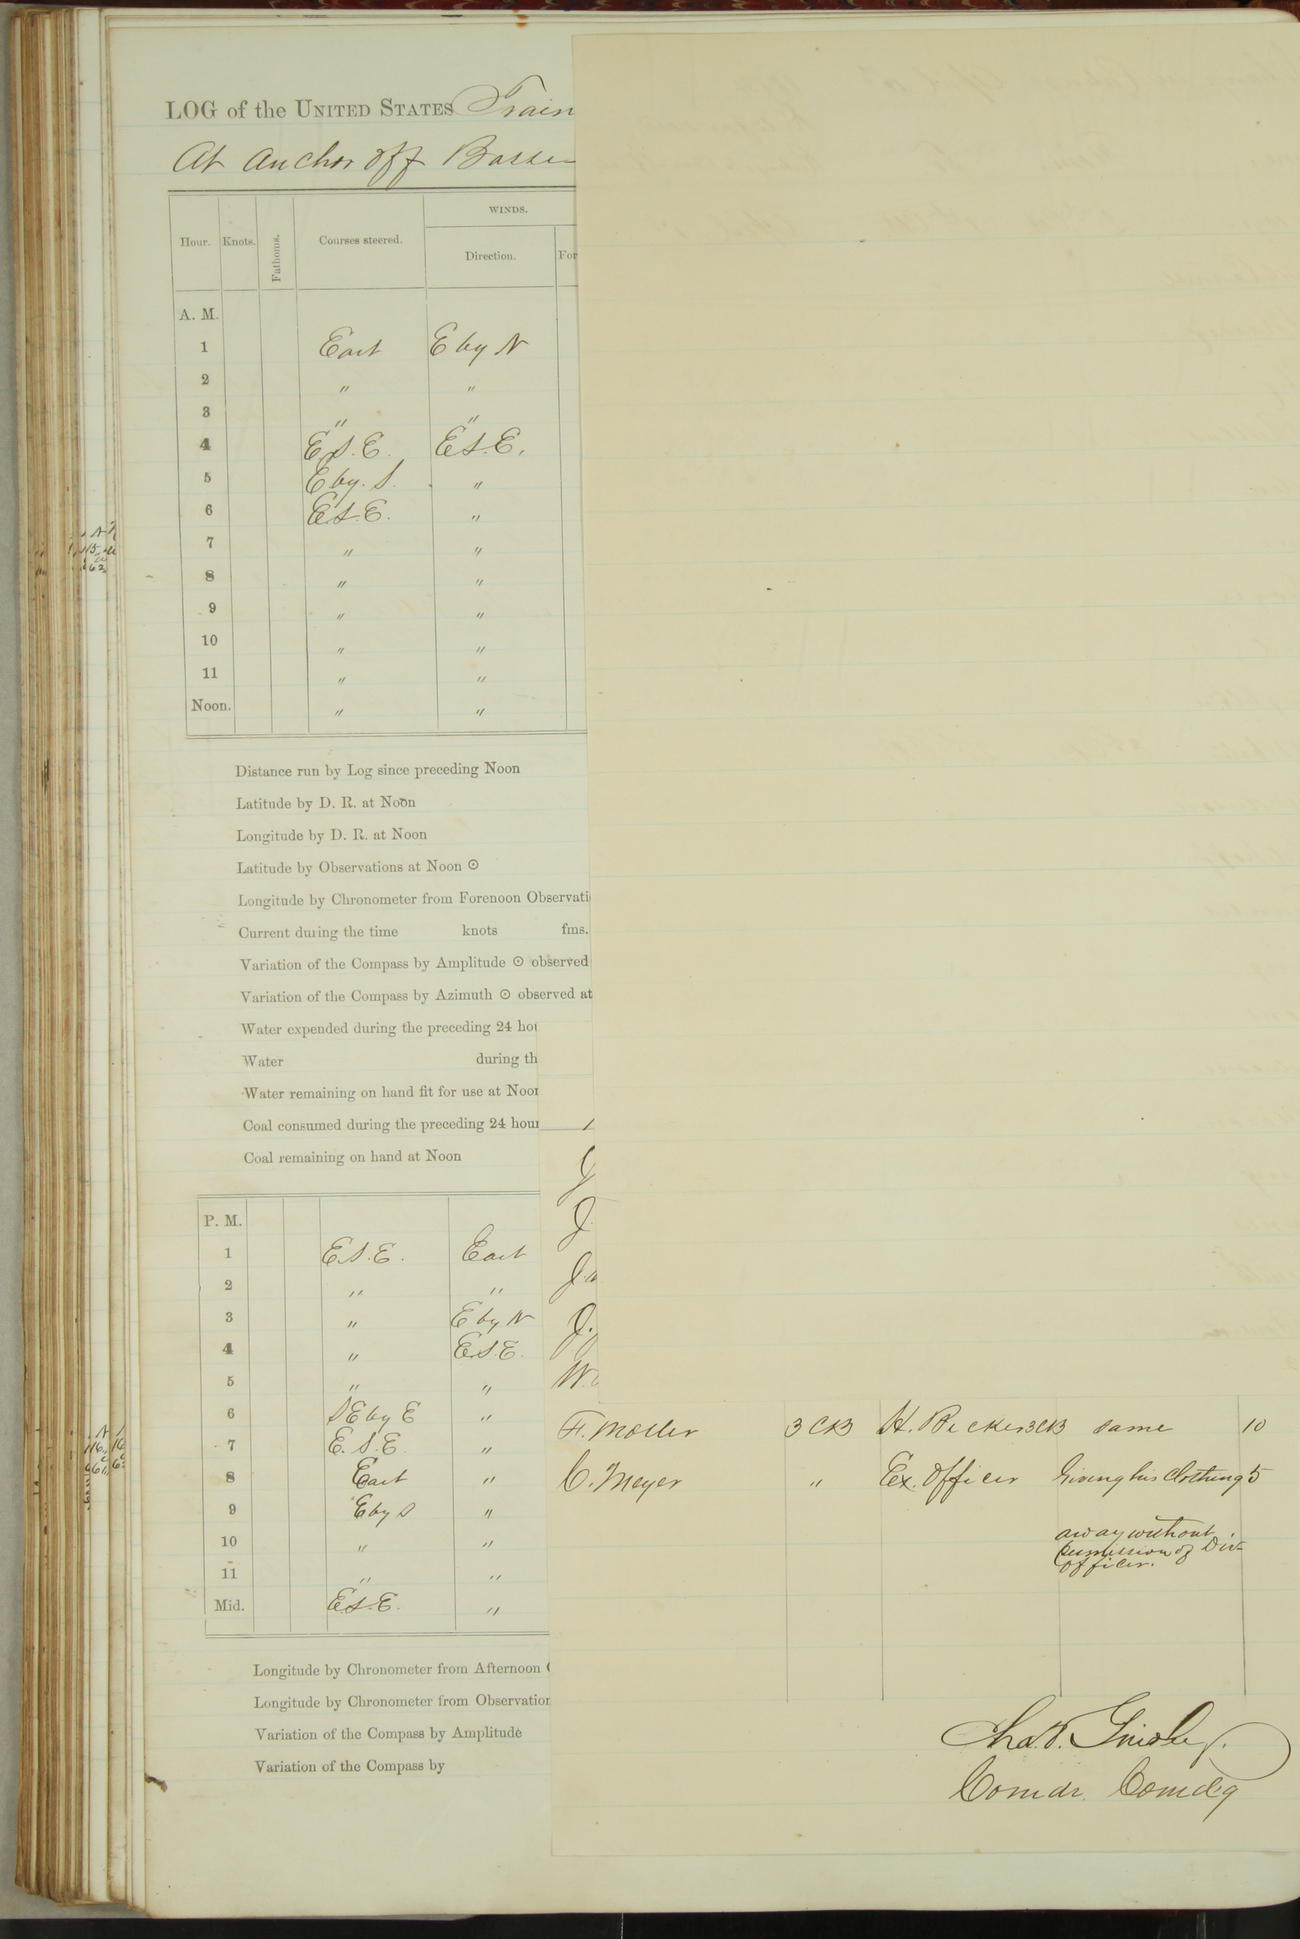 LOG of the UNITED STATES Train
At Anchor off Basse
WINDS.
Hour. Knots. Fathoms. Courses steered. Direction. For
A. M.
1 East E by N
2 " "
3 " "
4 E.S.E. E.S.E.
5 E by. S. "
6 E.S.E. "
7 " "
8 " "
9 " "
10 " "
11 " "
Noon. " "
Distance run by Log since preceding Noon
Latitude by D. R. at Noon
Longitude by D. R. at Noon
Latitude by Observations at Noon ☉
Longitude by Chronometer from Forenoon Observati
Current during the time knots fms.
Variation of the Compass by Amplitude ☉ observed
Variation of the Compass by Azimuth ☉ observed at
Water expended during the preceding 24 hou
Water during th
Water remaining on hand fit for use at Noon
Coal consumed during the preceding 24 hour
Coal remaining on hand at Noon
P. M.
1 E.S.E. East
2 " "
3 " E by N
4 " E.S.E.
5 " "
6 SE by E "
7 E.S.E. "
8 East "
9 E by S "
10 " "
11 " "
Mid. E.S.E. "
F. Moller 3 CB H. Becker 3CB same 10
C. Meyer " Ex. Officer Giving his Clothing 5
away without
permission of Div
Officer.
Longitude by Chronometer from Afternoon
Longitude by Chronometer from Observation
Variation of the Compass by Amplitude
Variation of the Compass by
Comdr. Comdg